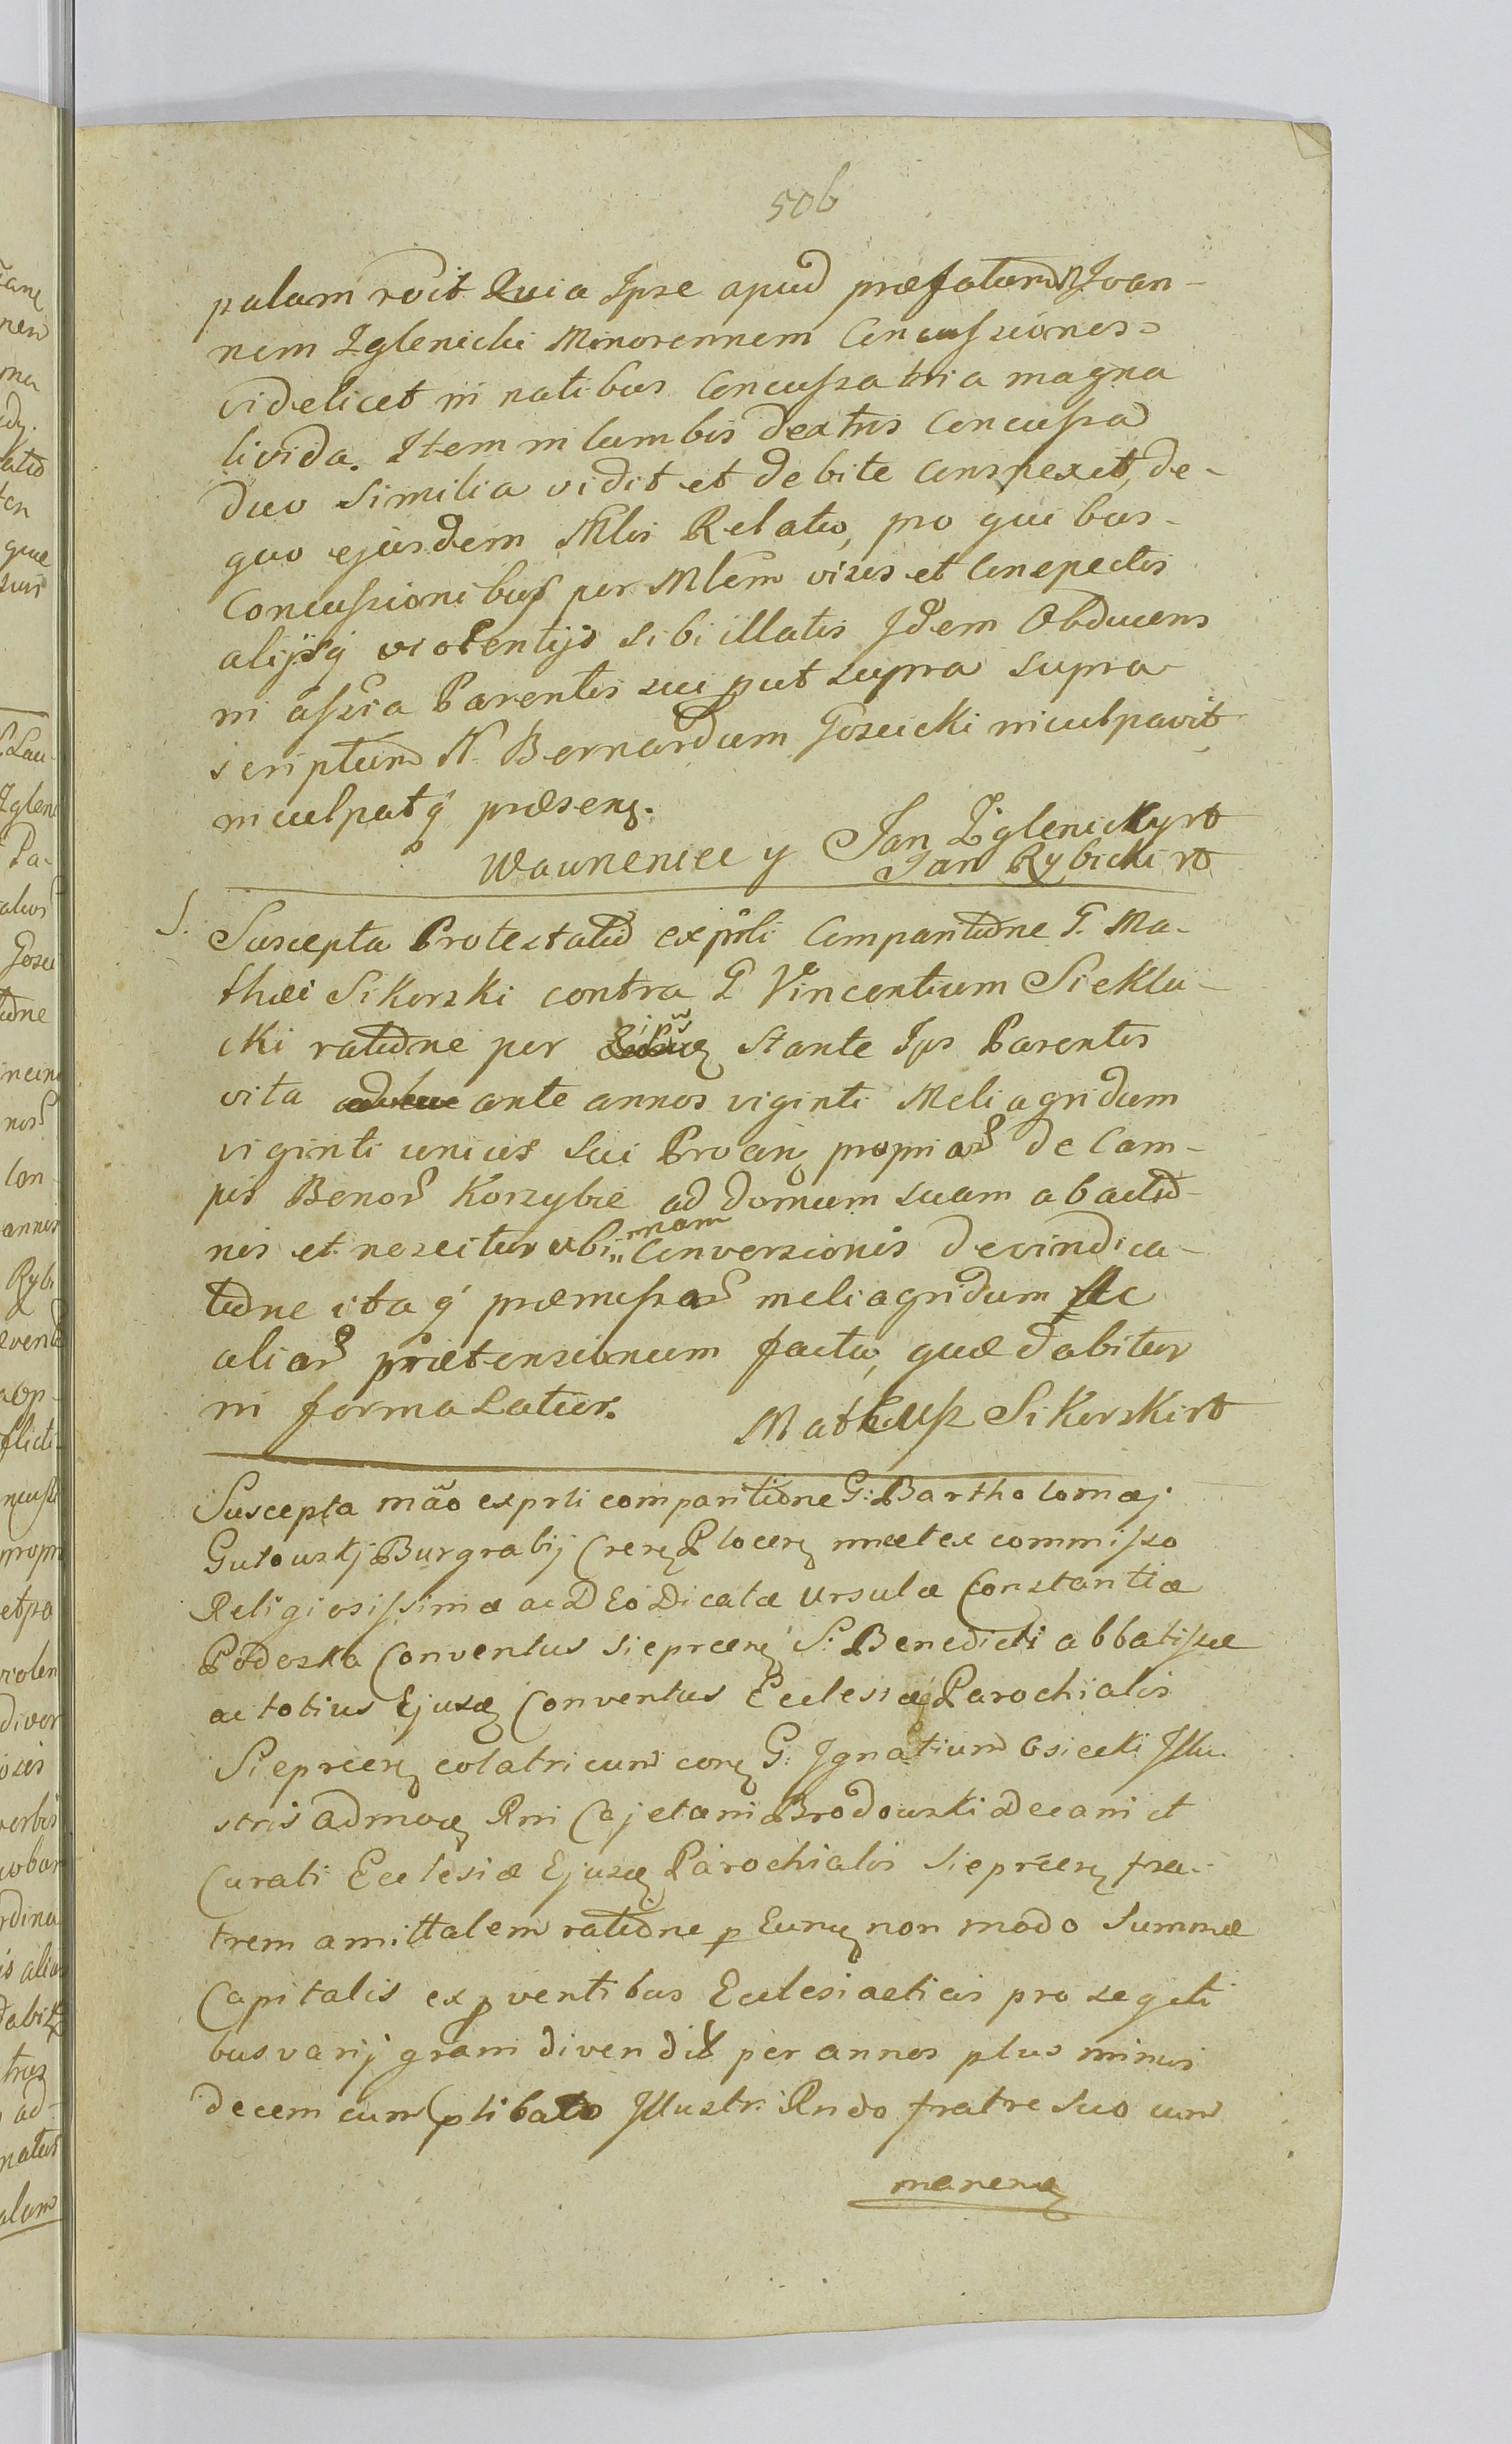 506
palam rċit Quia Ipse apud præfatum N Joan-
nem Zglenicki Minorennem Concussiones
videlicet in natibus Concussa tria magna
livida. Item in lumbis dextris Concussa
duo similia vidit et debite conspexit, de-
quo ejusdem Mlis Relatio, pro quibus-
Concussionibus per Mlem visis et Conspectis
alijsq violentijs sibi illatis Idem Obducens
in assña Parentis sui put supra supra
scriptum N. Bernardum Goscicki inculpavit
inculpatq præsens.
Jan Zglenicky
Jan Rybicki
S. Suscepta Protestatio ex psli Comparitione G. Ma-
thæi Sikorski contra G Vincentium Sieklu-
cki ratione per ipsū stante Ips Parentis
vita ante annos viginti Meliagridum
viginti unius sui propriar de Cam-
pis Bonor Korzybie ad domum suam abactio-
nis et nescitur ubi nam Conversionis devindica-
tione itaq præmissar meliagridum Ac
aliar prætensionum facta, quæ dabitur
in forma Latior.
Matheusz Sikorski
Suscepta mão ex prsli comparitione G: Bartholomæj
Gutouskj Burgrabij Cren Plocen ex commisso
Religiosissimæ ac DEo Dicatæ Ursulæ Constantiæ
Podoska Conventus Sieprcen S: Benedicti abbatissæ
ac totius Ejusd Conventus Ecclesiæq Parochialis
Sieprcen colatricum con G: Ignatium Osiecki Illu-
stris admod Rni Cajetani Brodouski Decani et
Curati Ecclesiæ Ejusd Parochialis Sieprcen fra-
trem amittalem ratione p Eund non modo summæ
Capitalis ex pventibus Ecclesiasticis pro segeti
bus varij grani divendit per annos plus minus
decem cum plibato Illustr: Rndo fratre suo cum
manend